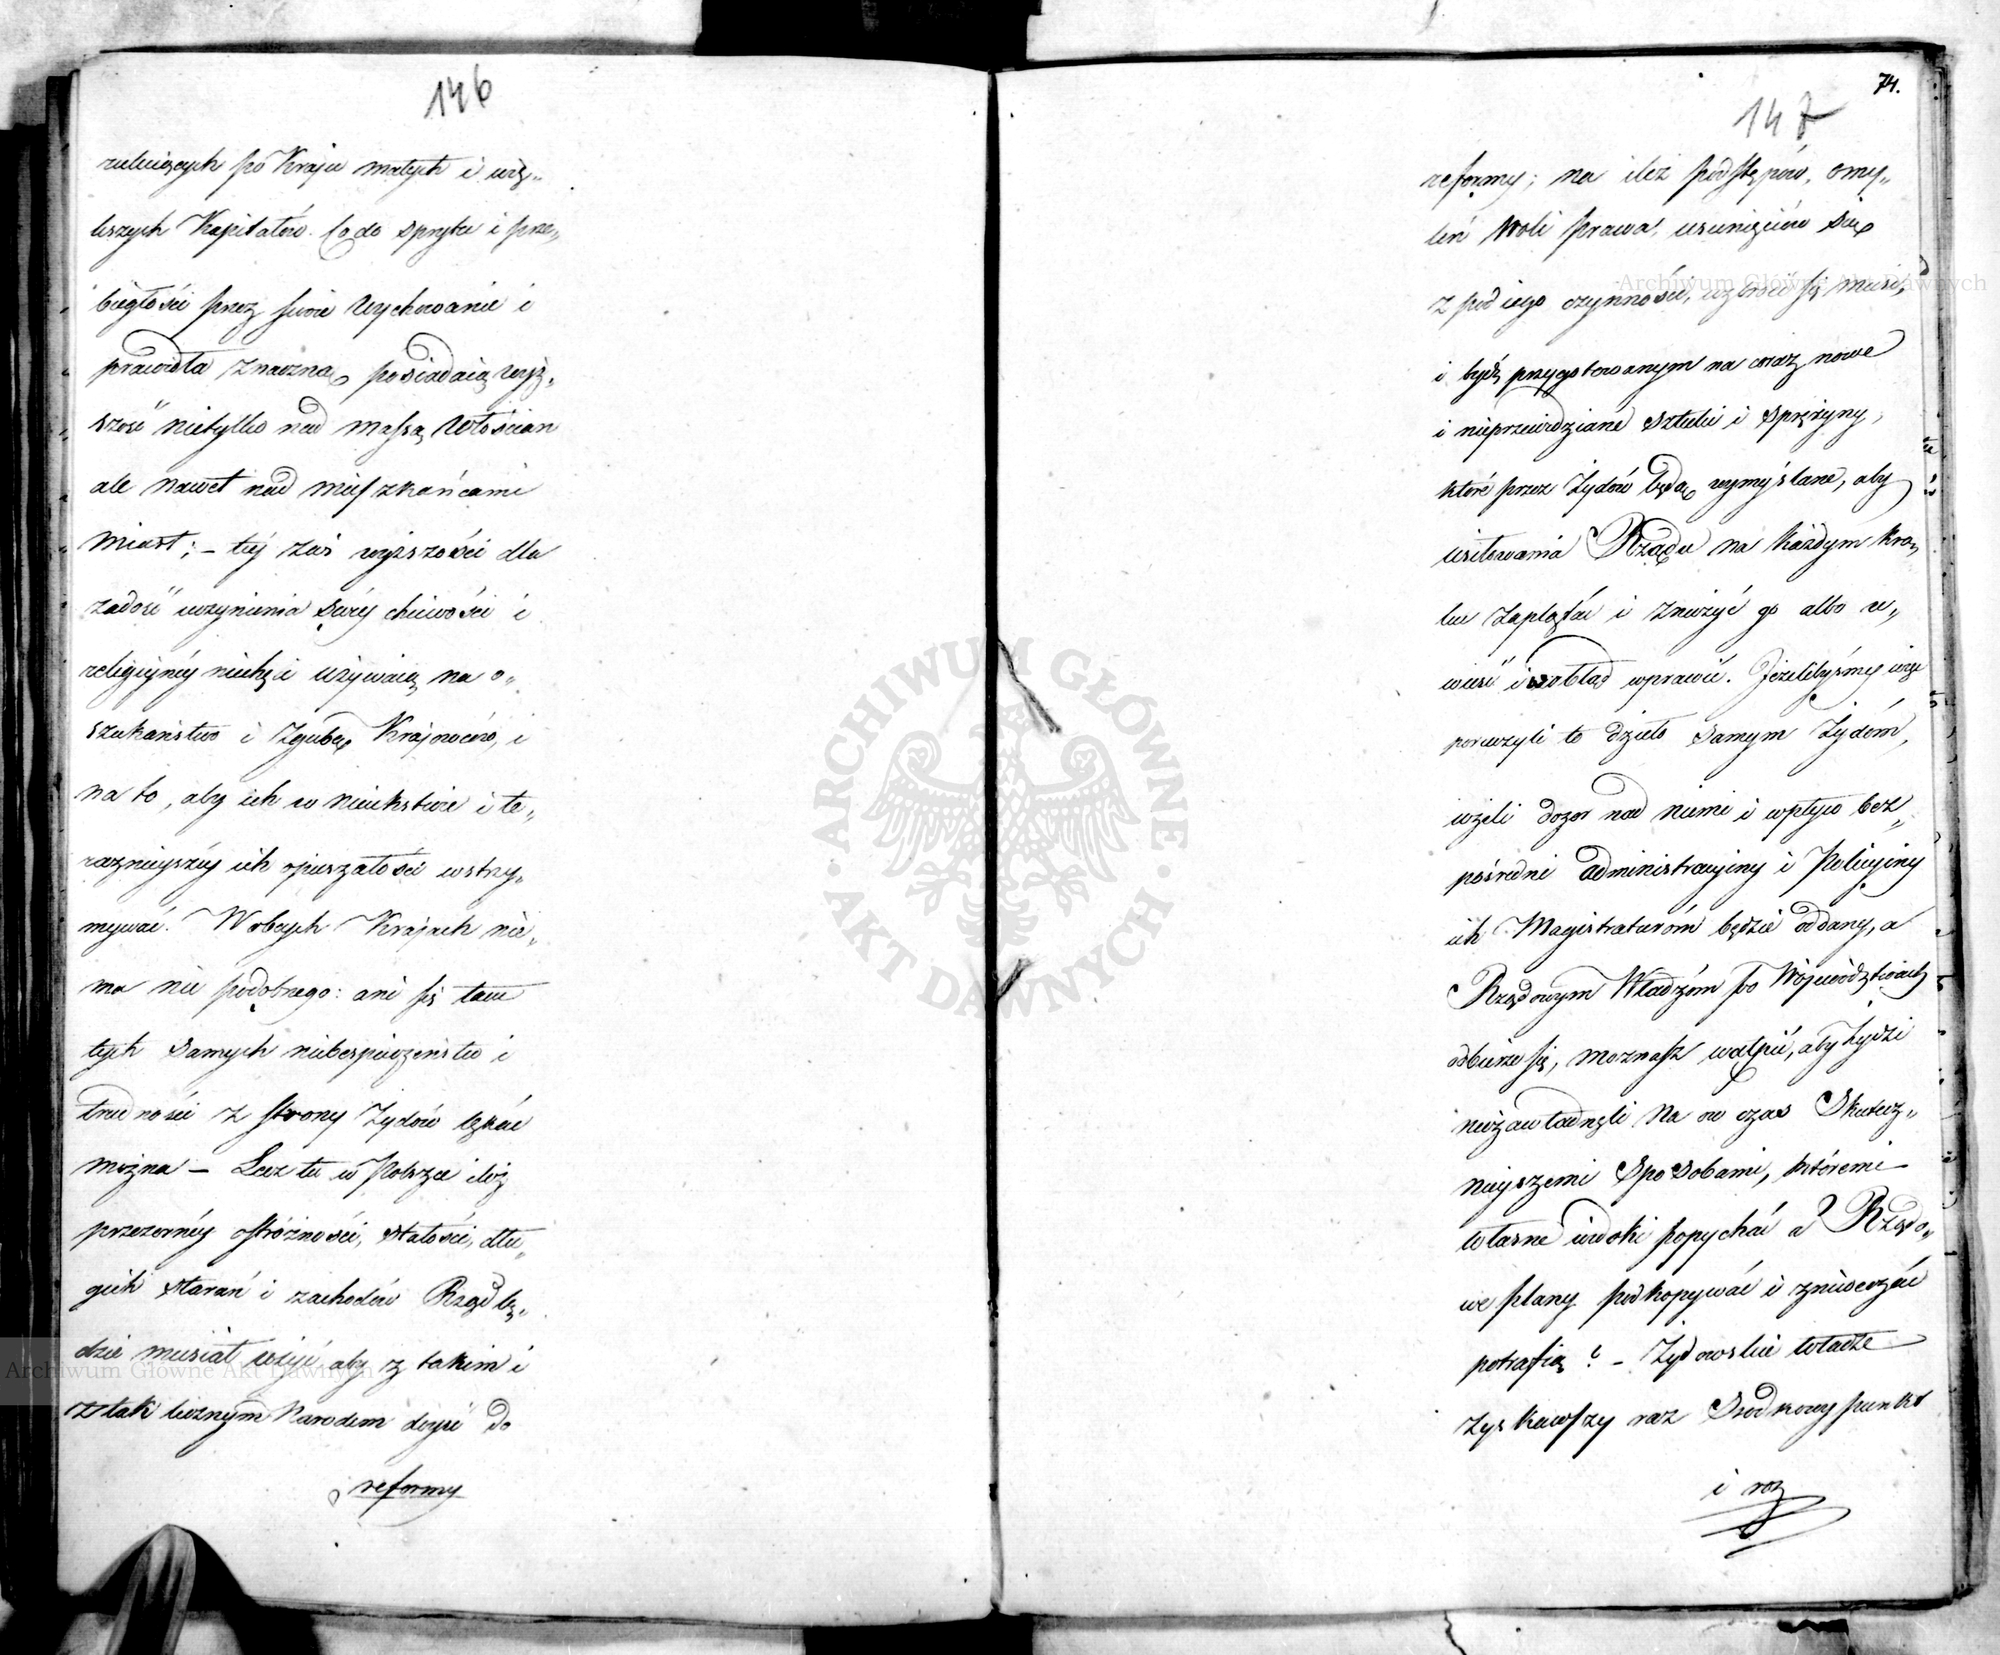 146
rulujących po Kraju małych i wię„
kszych Kapitałów. Co do sprytu i prze„
biegłości przez swoie wychowanie i
prawidła znaczną posiadaią wyż„
szość nietylko nad massą Włościan
ale nawet nad mieszkańcami
Miast; – téj zaś wyższości dla
zadość uczynienia swéy chciwości i
religiynéy niechęci używaią na o„
szukaństwo i zgubę Krajowców, i
na to, aby ich w nieuksztwie i te„
raznieyszéy ich opieszałości wstrzy„
mywać. W obcych Krajach nie„
ma nic podobnego: ani się tam
tych samych niebespieczeństw i
trudności z strony Żydów lękać
można – Lecz tu w Polszcze iléż
przezornéy ostróżności, stałości, dłu„
gich starań i zachodów Rząd bę„
dzie musiał użyć aby z takim i
z tak licznym Narodem doyść do
reformy
74.
147
reformy; na ileż podstępów, omy„
leń Woli prawa, usunięciów się
z pod iego czynności, uzbroić się musi,
i bydź przygotowanym na coraz nowe
i nieprzewidziane sztuki i sprężyny,
które przez Żydów będą wymyślane, aby
usiłowania Rządu na każdym kro„
ku zaplątać i znużyć go albo u„
wieść i w obłąd wprawić. Jeżelibyśmy więc
poruczyli to dzieło samym Żydóm,
ieżeli dozor nad niemi i wpływ bez„
pośredni administracyiny i Policyiny
ich Magistraturóm będzie oddany, a
Rządowym Władzóm po Wojewódzctwach
odbierze się, możnasz wątpić, aby Żydzi
niezawładnęli na ów czas skutecz„
nieyszemi sposobami, któremi
własne widoki popychać a Rządo„
we plany podkopywać i zniweczać
potrafią? – Żydowskie władze
zyskawszy raz srodkowy punkt
i roz
Archiwum Główne Akt Dawnych
Archiwum Główne Akt Dawnych
ARCHIWUM GŁÓWNE · AKT DAWNYCH ·